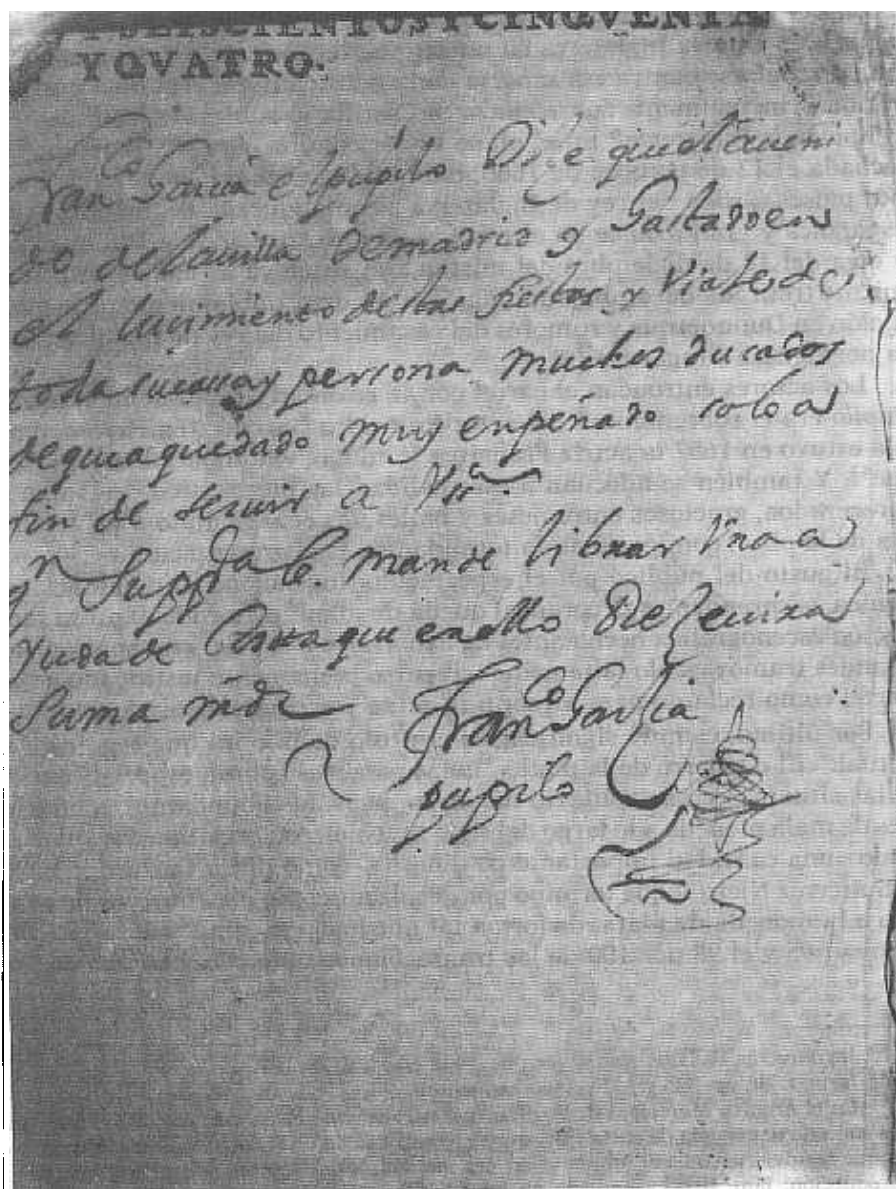 Y SEISCIENTOS Y CINQVENTA
Y QVATRO.
Franco Garcia el pupilo Dize que el a veni
do de la uilla de madrid y Gastado en
el lucimiento de las fiestas y Viaje de
toda su casa y persona muchos ducados
de que a quedado muy enpeñado solo a
fin de seruir a Vsa.
Suppda le mande librar Vna a
yuda de Costa que en ello Rezeuira
Suma md
Franco Garzia
pupilo